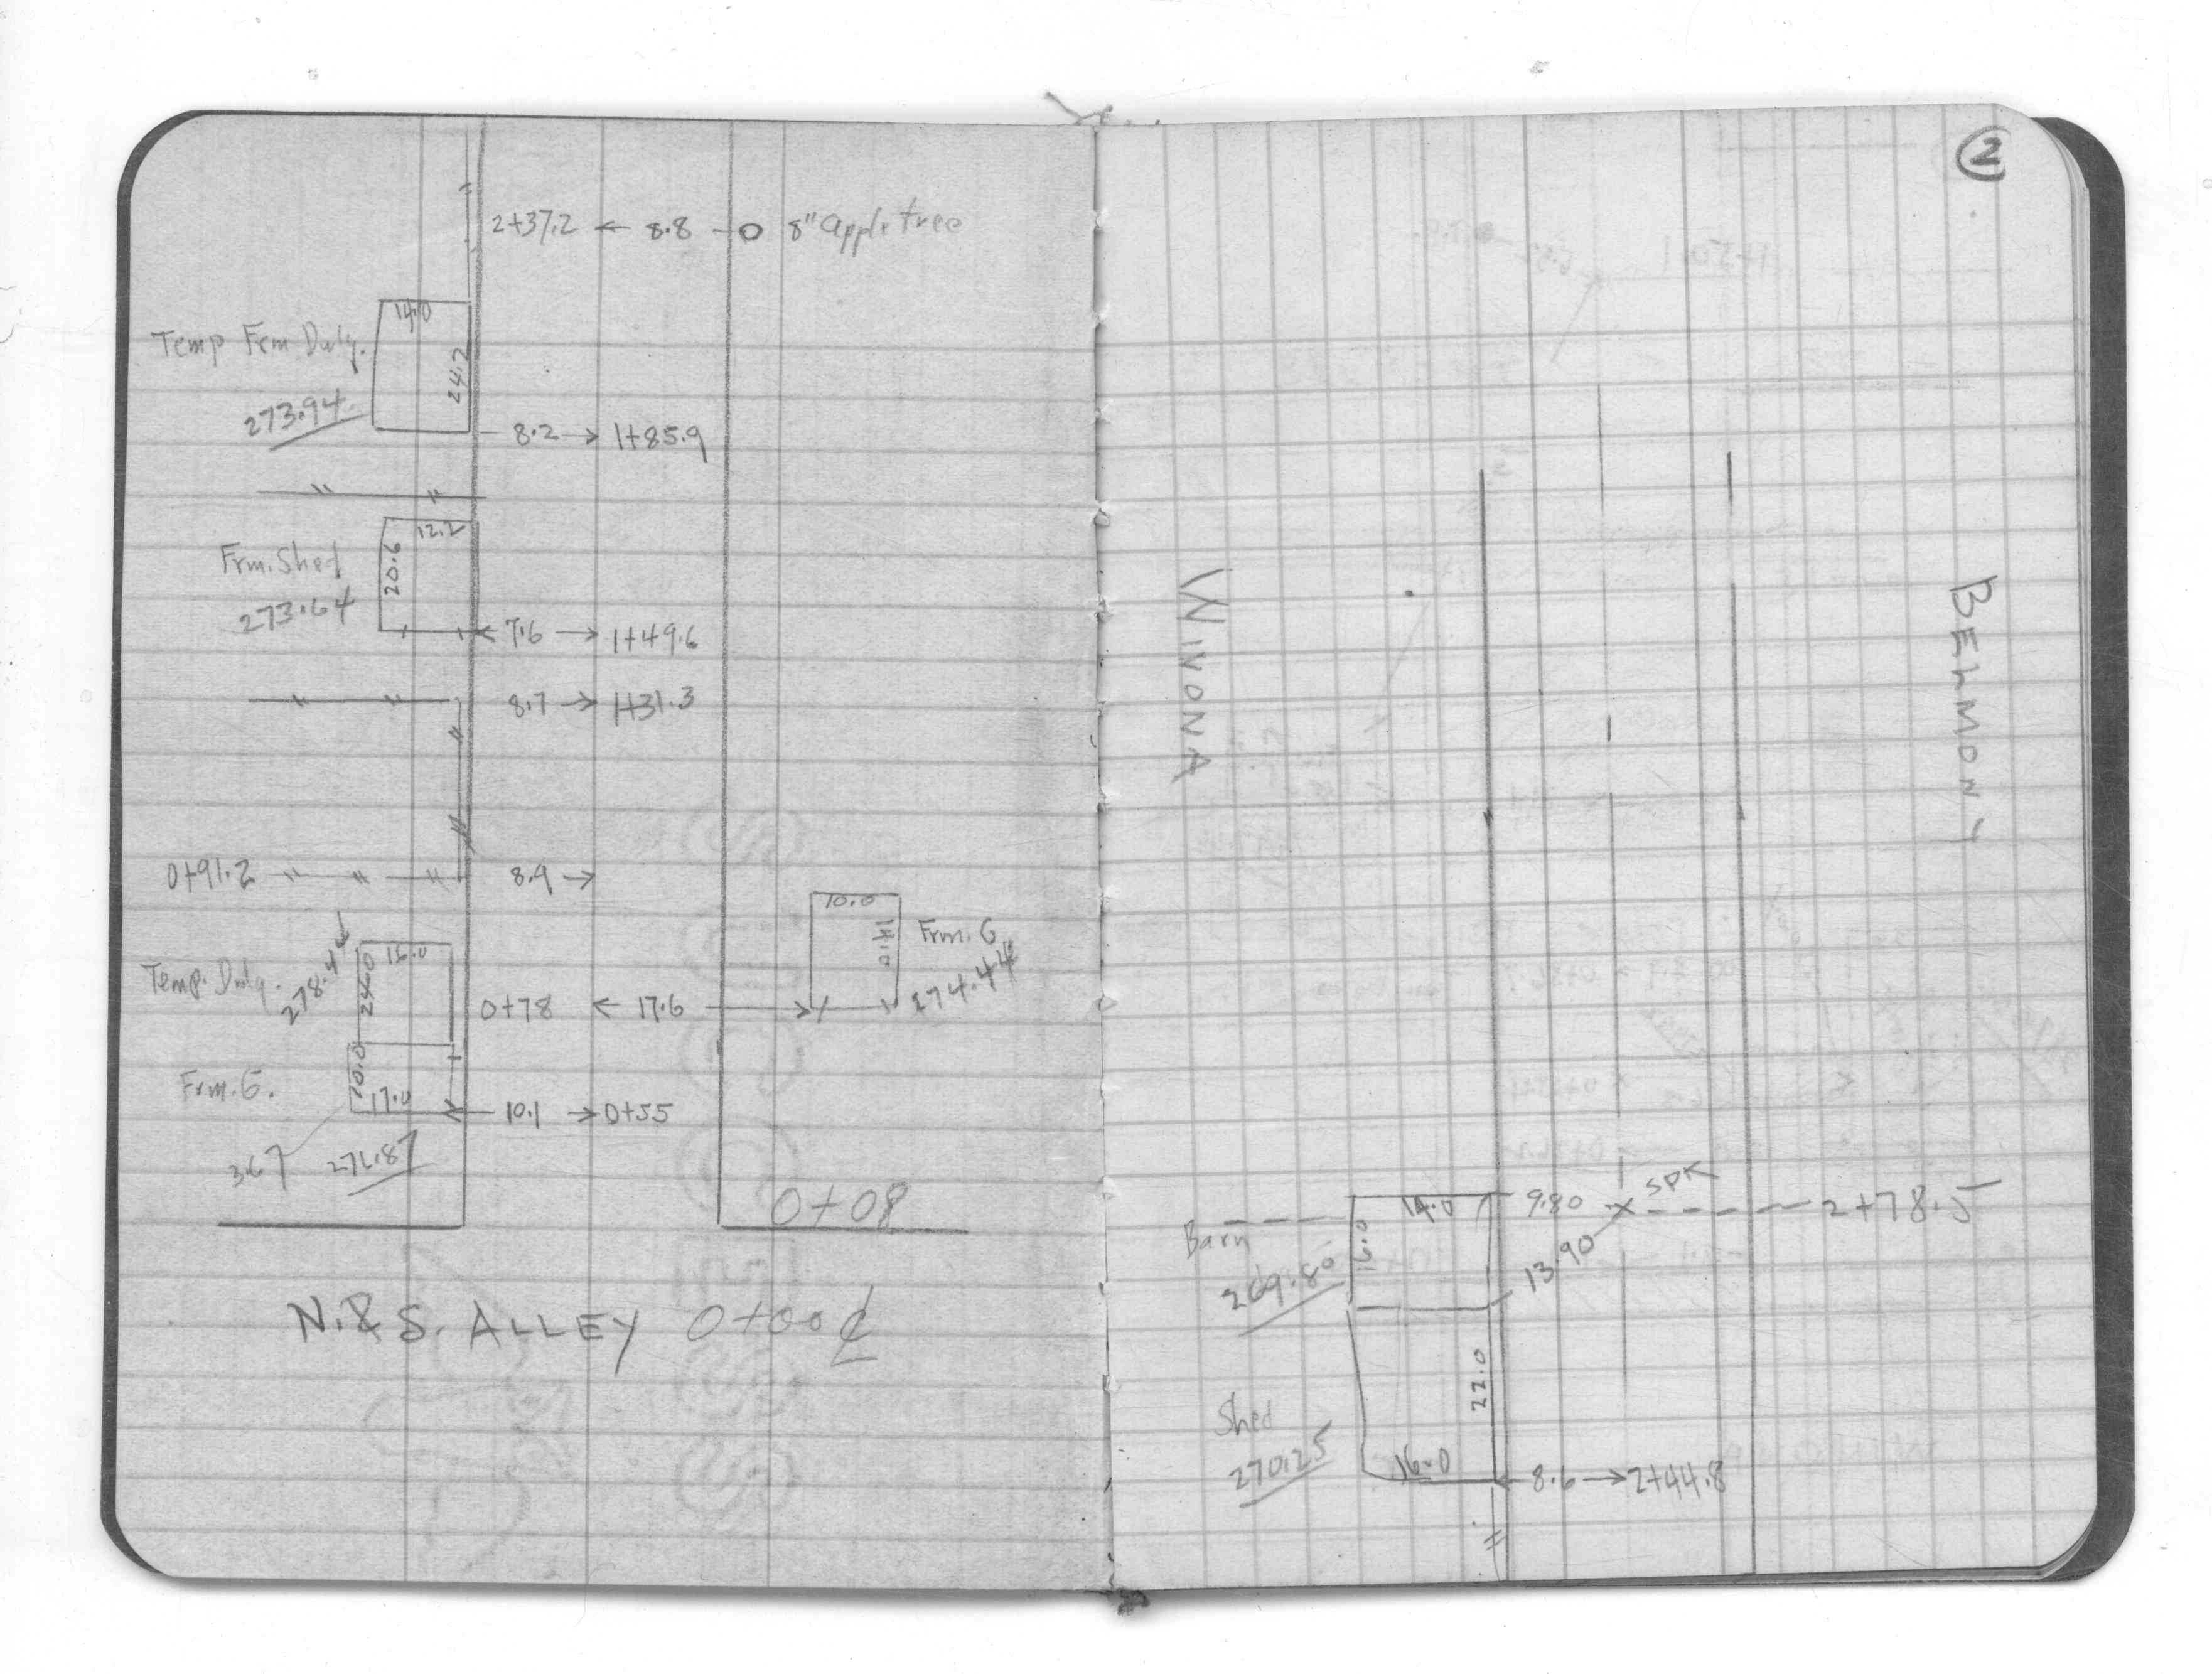 2+37.2 ← 8.8 - o 8" apple tree
14.0
Temp Frm Dwlg.
24.2
273.94
8.2 → 1+85.9
12.2
Frm. Shed
20.6
273.64
← 7.6 → 1+49.6
8.7 → 1+31.3
0+91.2
8.9 →
10.0
14.0
Frm. G
274.44
16.0
Temp. Dwlg.
278.4
24.0
0+78 ← 17.6 →
Frm. G.
10.0
17.0
← 10.1 → 0+55
3.67
0+08
N. & S. ALLEY 0+00 ℄
2
WINONA
BELMONT
SPK
14.0
9.80
2+78.5
Barn
16.0
13.90
269.80
22.0
Shed
270.25
16.0
← 8.6 → 2+44.8